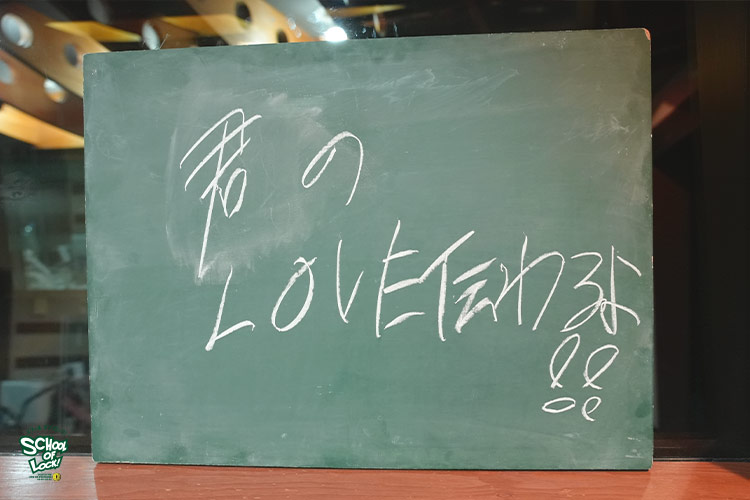 君の
LOVE伝わるよ
!!
SCHOOL
OF
LOCK!